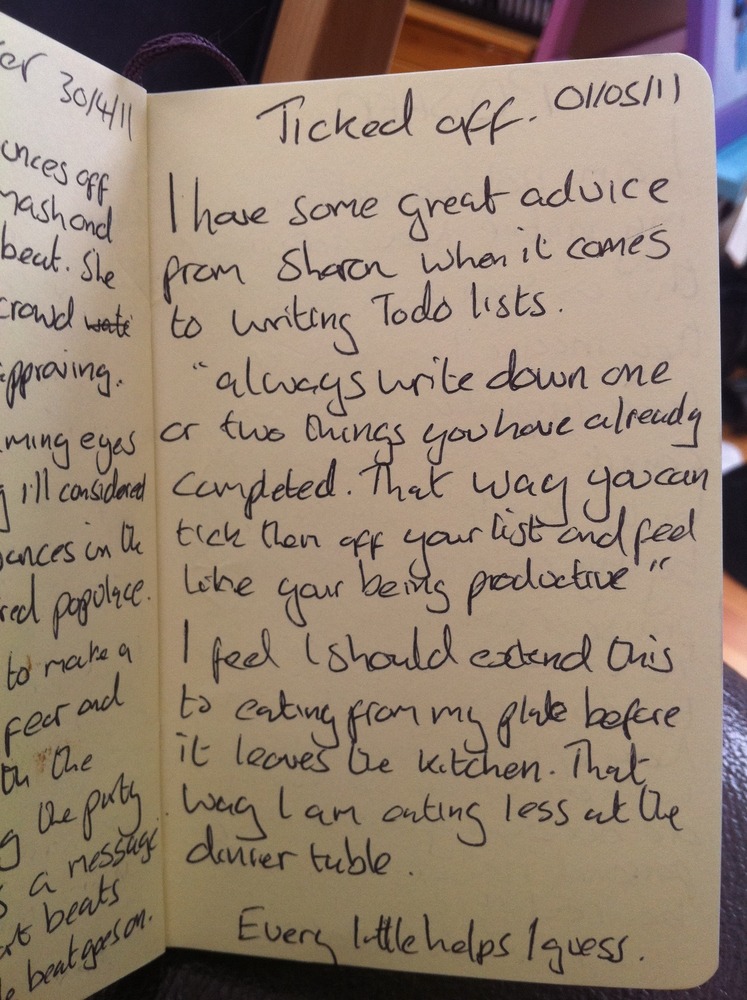 er 30/4/11
unces off
mash and
beat. She
crowd
approving.
ming eyes
g i'll considered
ances in the
red populace.
to make a
fear and
the
g the party
s a message
beats
beat goes on.
Ticked off. 01/05/11
I have some great advice
from Sharon when it comes
to writing Todo lists.
"always write down one
or two things you have already
completed. That way you can
tick them off your list and feel
like your being productive"
I feel I should extend this
to eating from my plate before
it leaves the kitchen. That
way I am eating less at the
dinner table.
Every little helps I guess.